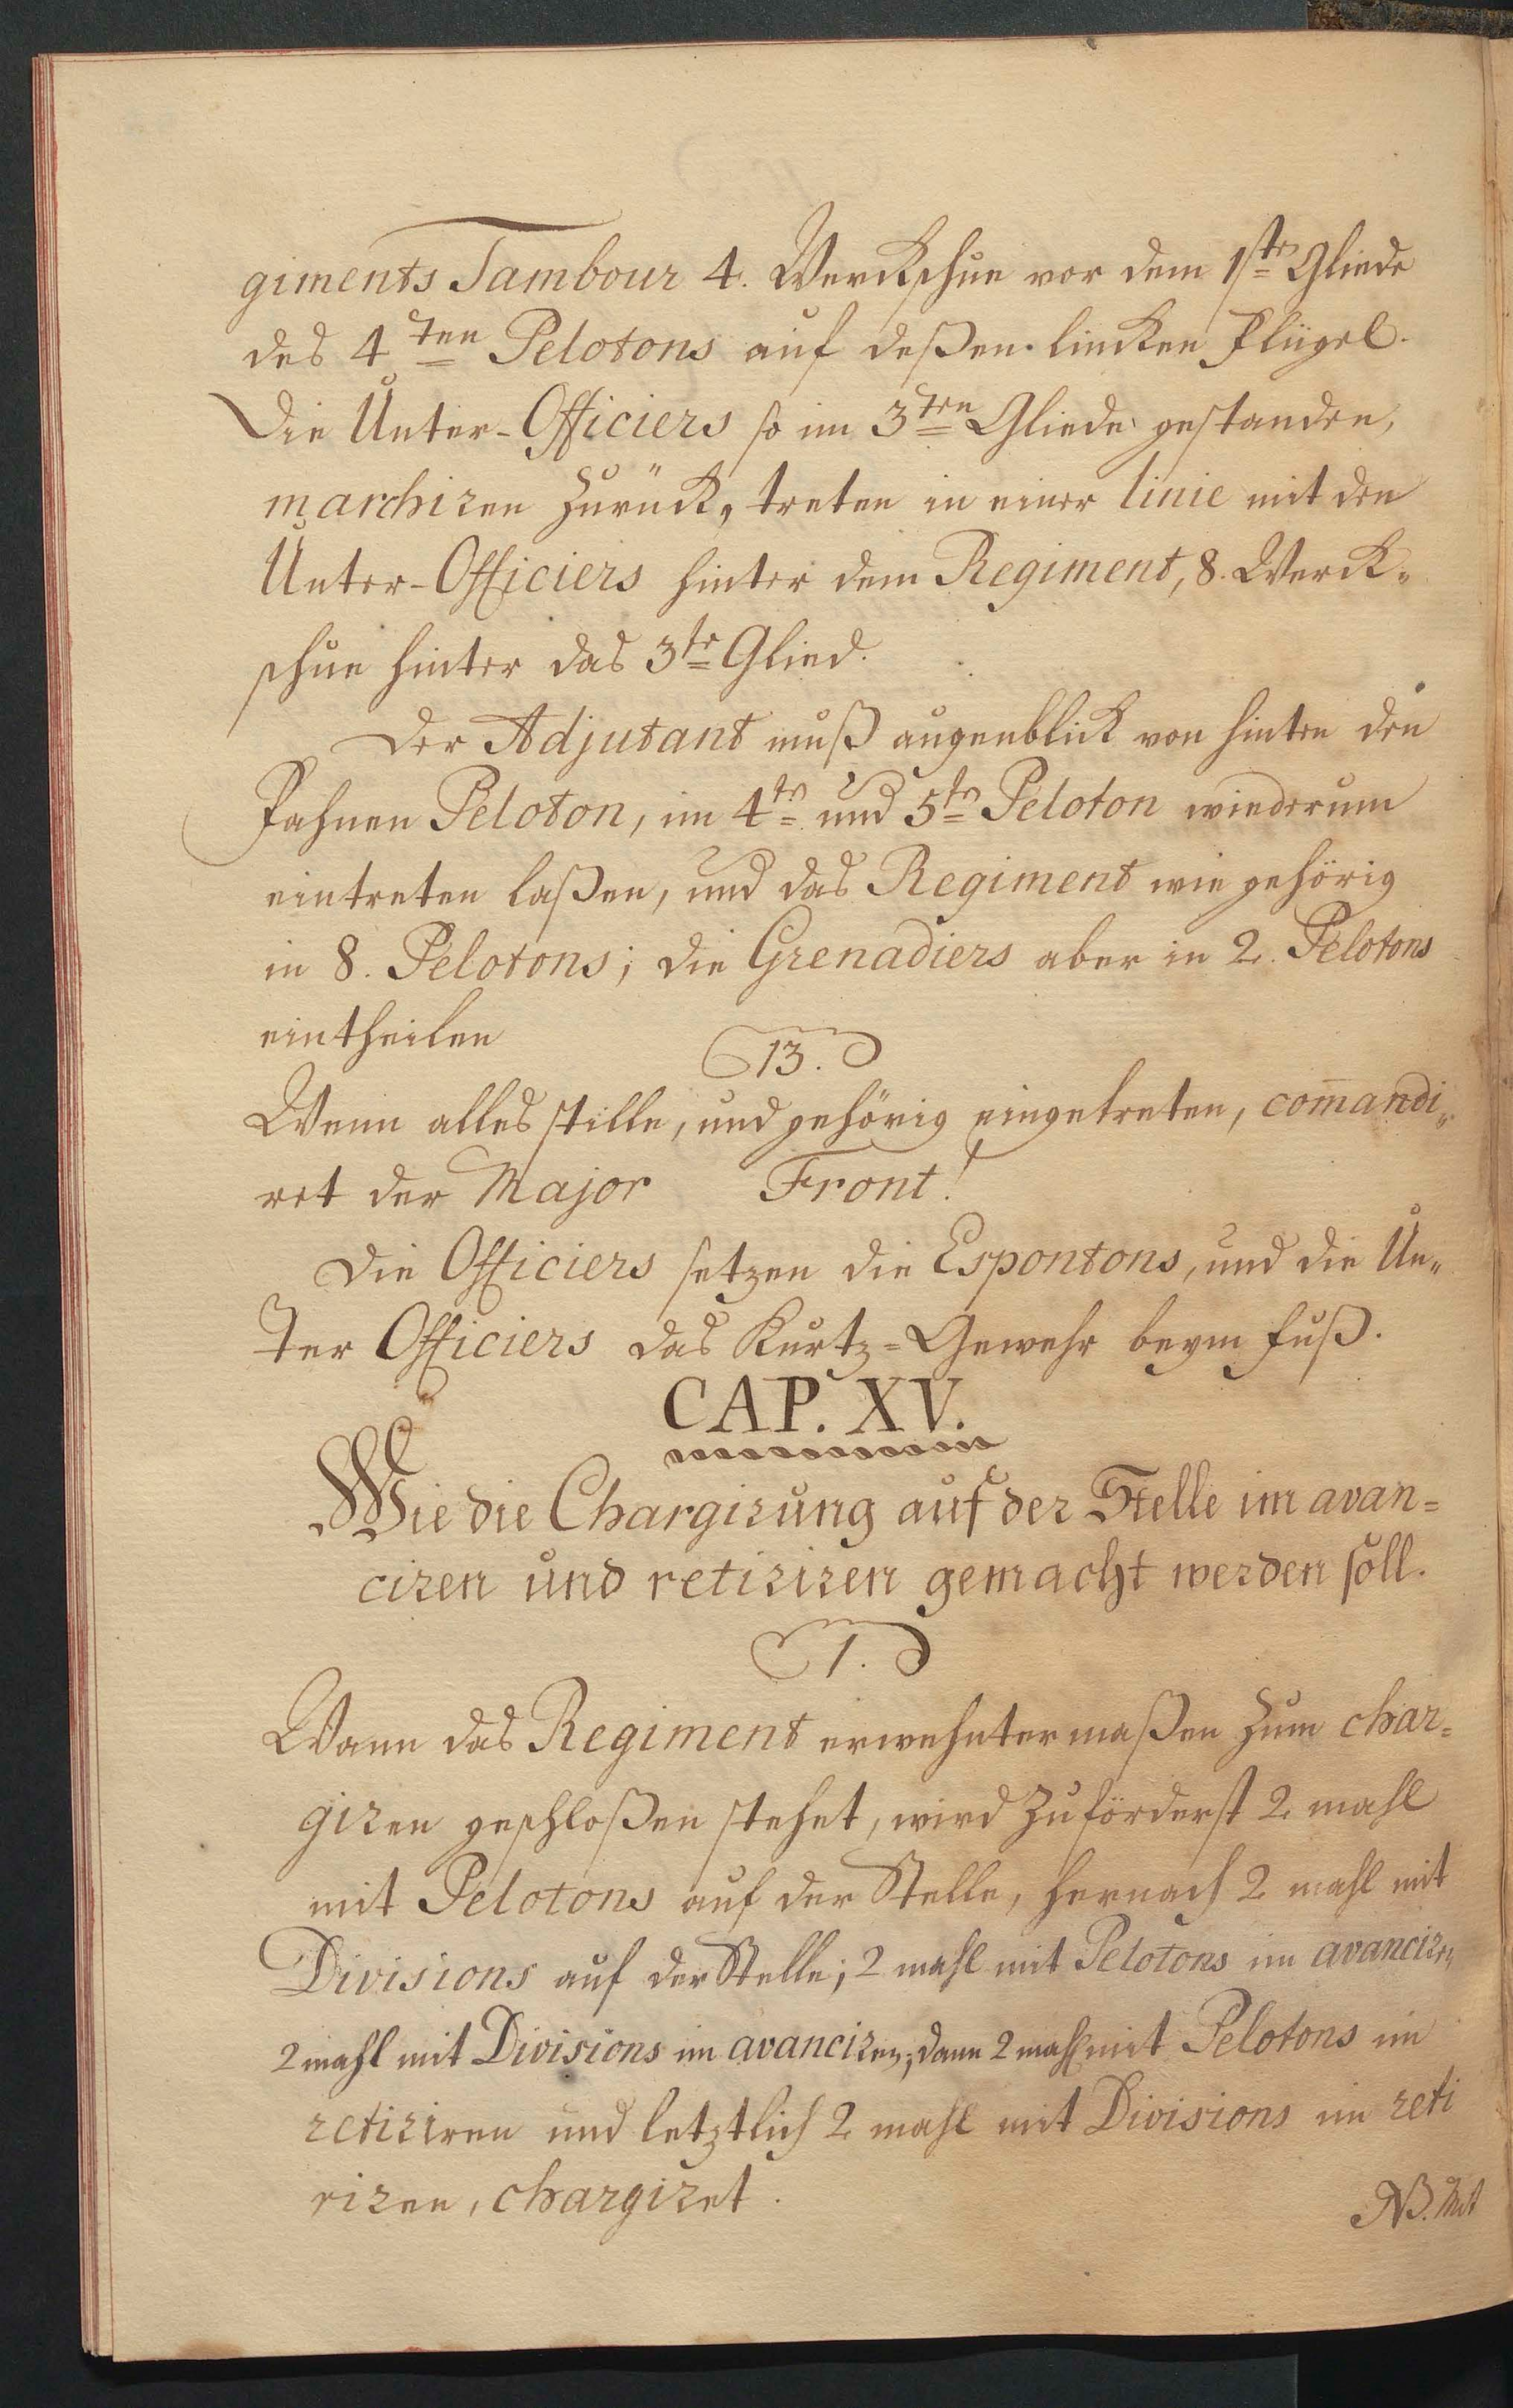 giments Tambour 4. Werckschue vor dem 1ste Gliede
des 4ten Pelotons auf deßen lincken Flügel.
Die Unter-Officiers so im 3ten Gliede gestanden,
marchiren zurück, treten in einer linie mit den
Unter-Officiers hinter dem Regiment, 8. Werck„
schue hinter das 3te Glied.
Der Adjutant muß augenblick von hinten den
Fahnen Peloton, im 4te und 5te Peloton wiederum
eintreten laßen, und das Regiment wie gehörig
in 8. Pelotons; die Grenadiers aber in 2. Pelotons
eintheilen
13.
Wenn alles stille, und gehörig eingetreten, com̄andi„
ret der Major Front!
Die Officiers setzen die Espontons, und die Un„
ter Officiers das Kurtz=Gewehr beym fuß.
CAP. XV.
Wie die Chargirung auf der Stelle im avan=
ciren und retiriren gemacht werden soll.
1.
Wann das Regiment erwehntermaßen zum char=
giren geschloßen stehet, wird zuförderst 2 mahl
mit Pelotons auf der Stelle, hernach 2 mahl mit
Divisions auf der Stelle; 2 mahl mit Pelotons im avanciren,
2 mahl mit Divisions im avanciren; dann 2 mahl mit Pelotons im
retiriren und letztlich 2 mahl mit Divisions im reti
riren, chargiret.
NB. Mit